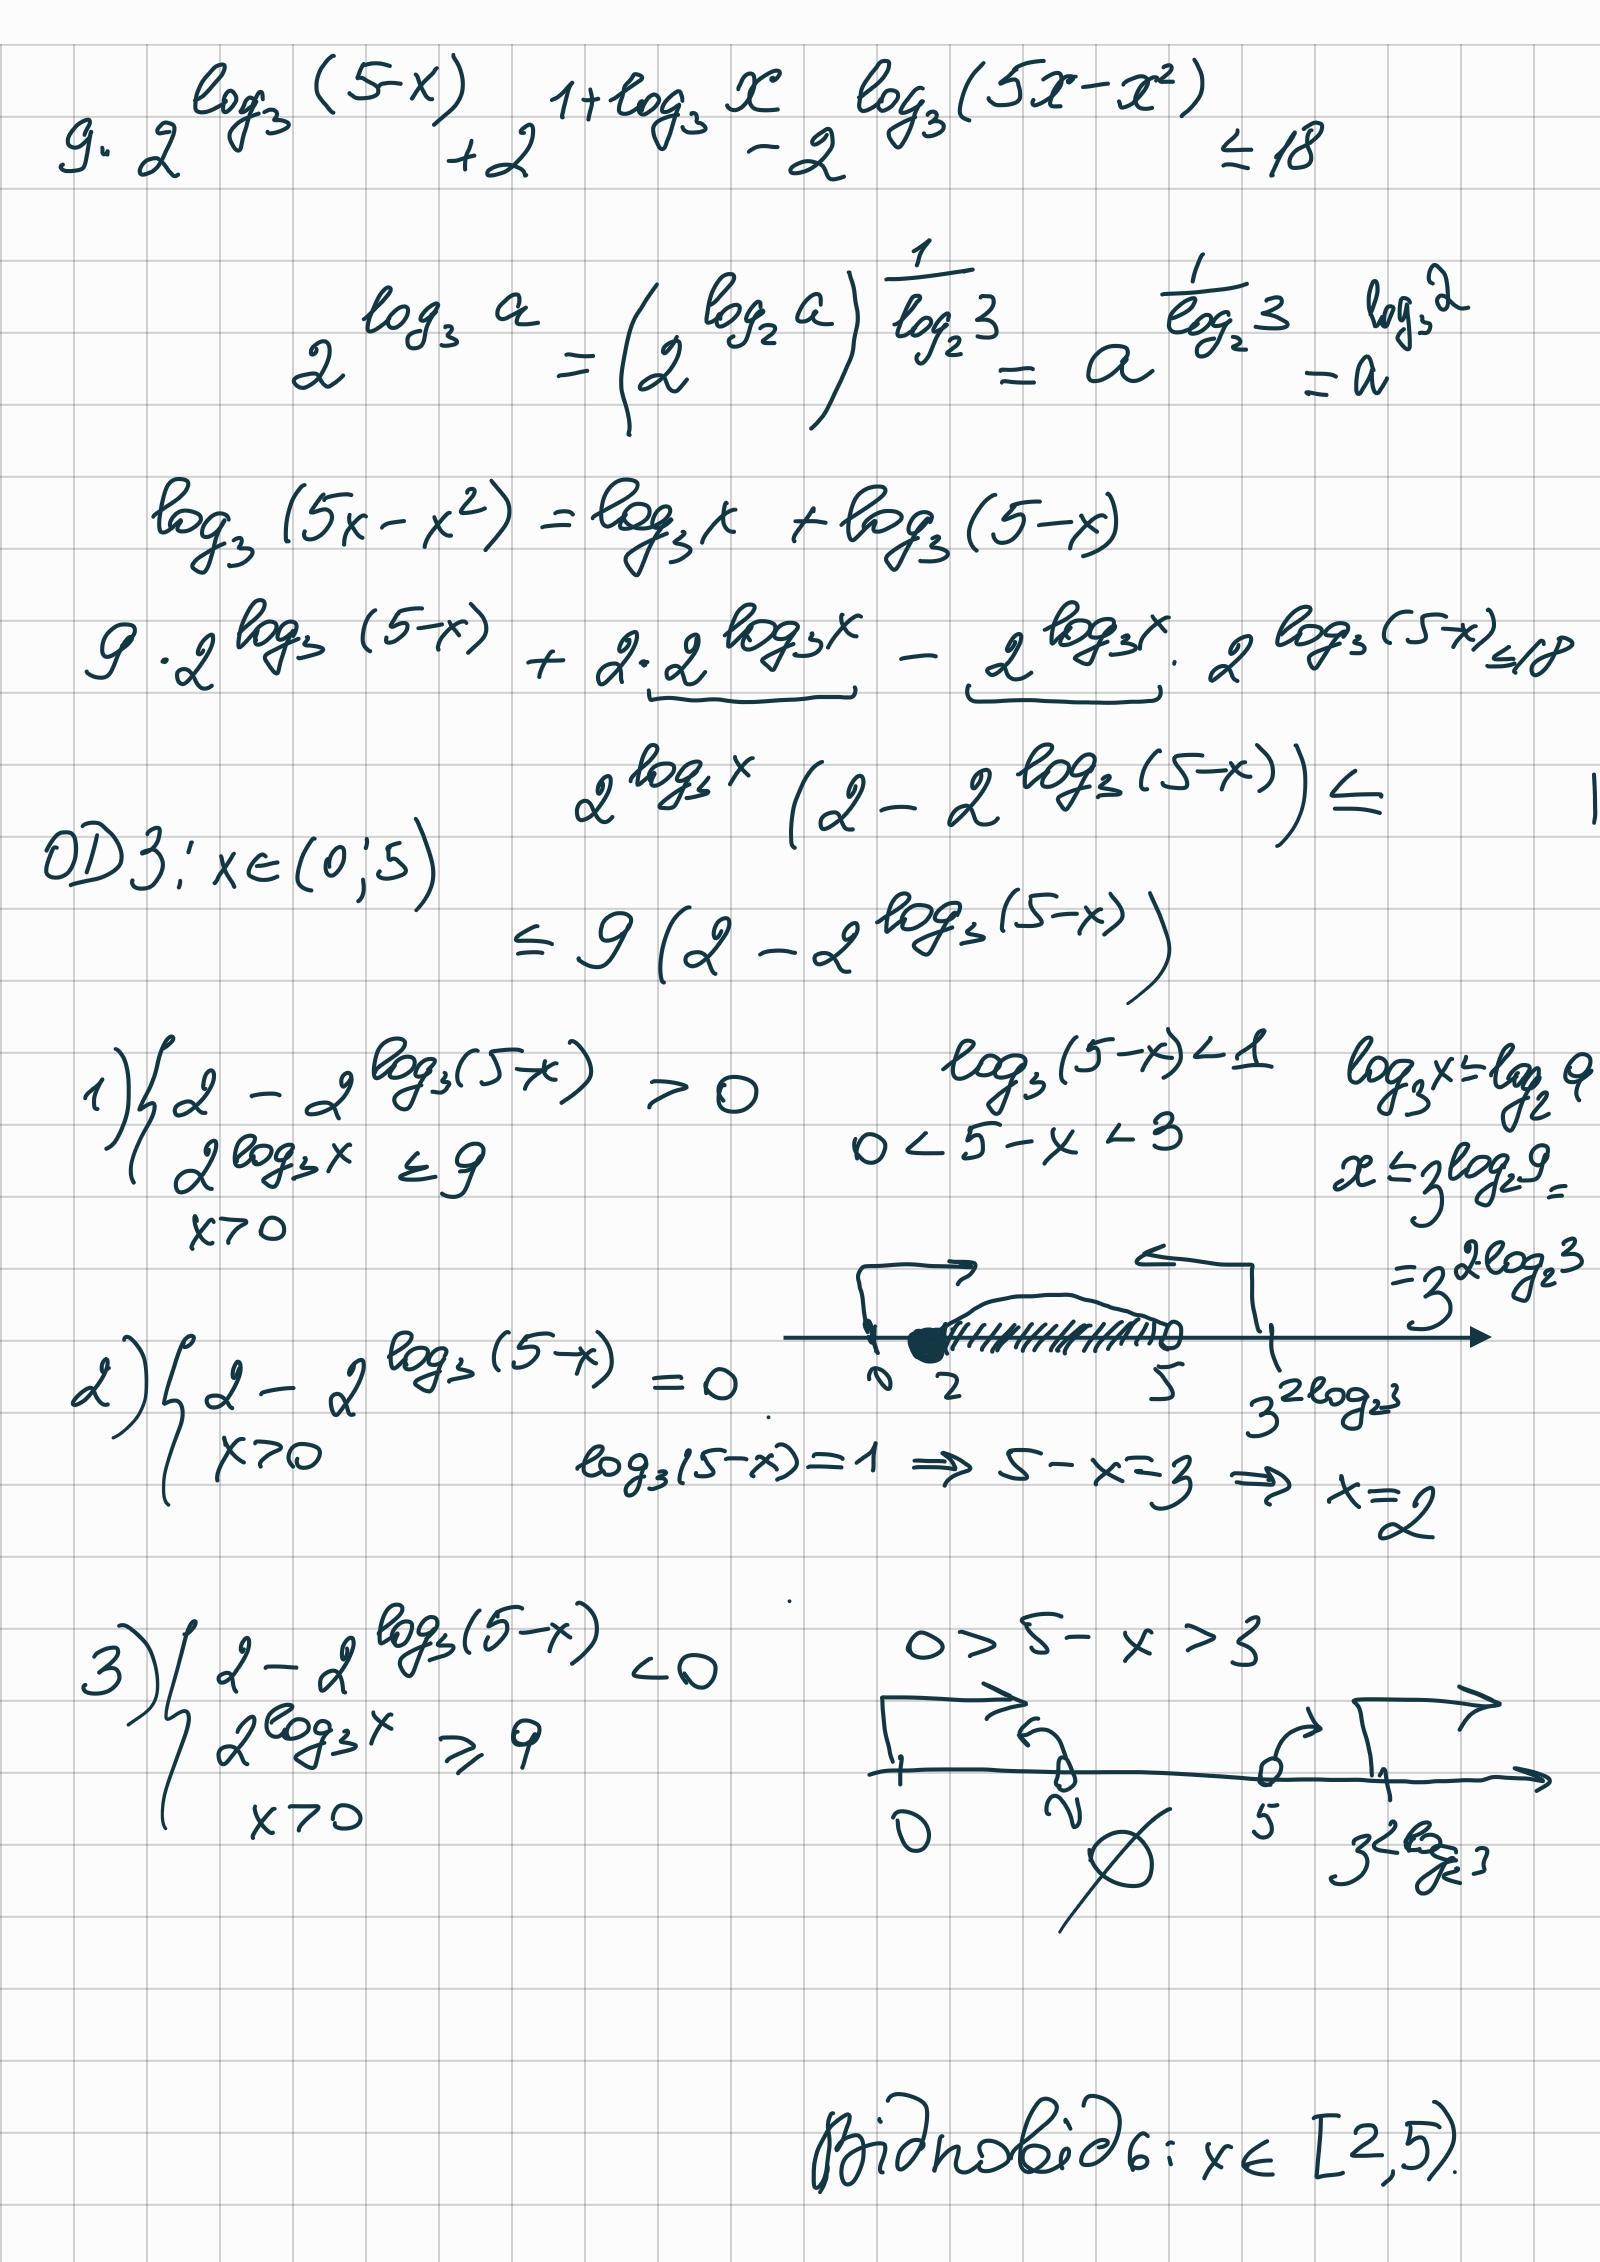 9·2^{log_3(5-x)} + 2^{1+log_3 x} - 2^{log_3(5x-x²)} ≤ 18
2^{log_3 a} = (2^{log_2 a})^{1/log_2 3} = a^{1/log_2 3} = a^{log_3 2}
log_3(5x-x²) = log_3 x + log_3(5-x)
9·2^{log_3(5-x)} + 2·2^{log_3 x} - 2^{log_3 x}·2^{log_3(5-x)} ≤ 18
2^{log_3 x}(2 - 2^{log_3(5-x)}) ≤
ОДЗ: x∈(0;5)
≤ 9(2 - 2^{log_3(5-x)})
1) { 2 - 2^{log_3(5-x)} > 0
2^{log_3 x} ≤ 9
x>0
log_3(5-x) < 1
0 < 5-x < 3
log_3 x ≤ log_2 9
x ≤ 3^{log_2 9} =
= 3^{2log_2 3}
0 2 5 3^{2log_2 3}
2) { 2 - 2^{log_3(5-x)} = 0
x>0
log_3(5-x) = 1 ⇒ 5-x=3 ⇒ x=2
3) { 2 - 2^{log_3(5-x)} < 0
2^{log_3 x} ≥ 9
x>0
0 > 5-x > 3
0 2 5 3^{2log_2 3}
∅
Відповідь: x∈ [2,5).